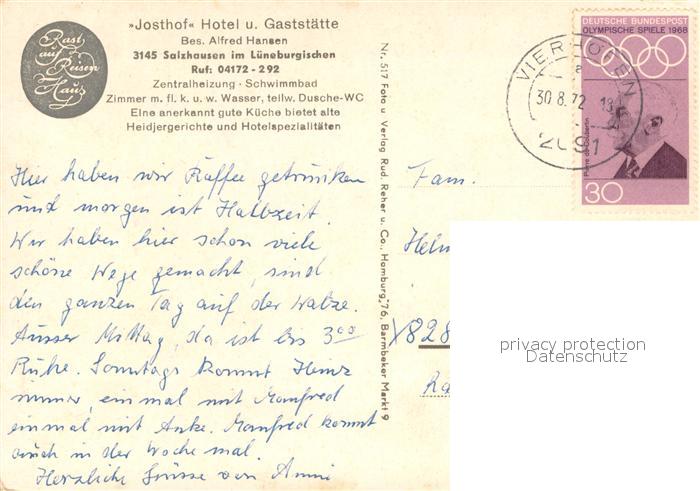 »Josthof« Hotel u. Gaststätte
Bes. Alfred Hansen
3145 Salzhausen im Lüneburgischen
Ruf: 04172 - 292
Zentralheizung · Schwimmbad
Zimmer m. fl. k. u. w. Wasser, teilw. Dusche-WC
Eine anerkannt gute Küche bietet alte
Heidjergerichte und Hotelspezialitäten
Rast
auf
Reisen
Haus
Hier haben wir Kaffee getrunken
und morgen ist Halbzeit.
Wir haben hier schon viele
schöne Wege gemacht, sind
den ganzen Tag auf der Walze.
Ausser Mittag, da ist bis 3⁰⁰
Ruhe. Sonntags kommt Heinz
immer, einmal mit Manfred
einmal mit Anke. Manfred kommt
auch in der Woche mal.
Herzliche Grüsse von Anni
Nr. 517 Foto u. Verlag Rud. Reher u. Co., Hamburg 76, Barmbeker Markt 9
Fam.
Helm
828
DEUTSCHE BUNDESPOST
OLYMPISCHE SPIELE 1968
Pierre de Coubertin
30
VIERHÖFEN
a
30.8.72 18
2091
privacy protection
Datenschutz